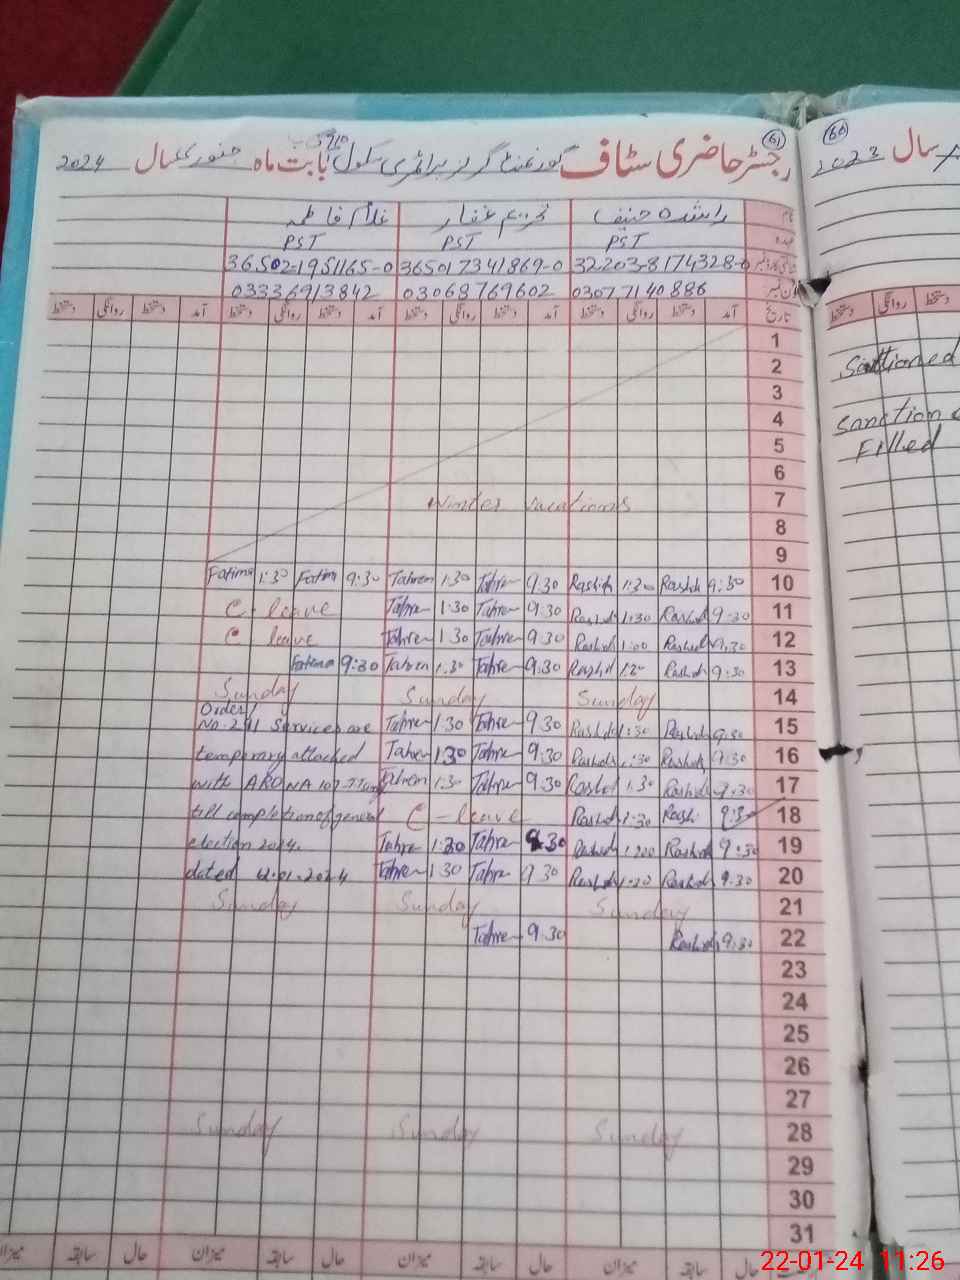 رجسٹر حاضری سٹاف گورنمنٹ گرلز پرائمری سکول بابت ماہ جنوری سال 2024
61
نام راشدہ حنیف تحریم غفار غلام فاطمہ
عہدہ PST PST PST
32203-8174328-6 36501 7341869-0 36502-1951165-0
فون نمبر 03077140886 03068769602 03336913842
تاریخ آمد دستخط روانگی دستخط آمد دستخط روانگی دستخط آمد دستخط روانگی دستخط آمد دستخط روانگی دستخط
1
2
3
4
5
6
Winter vacations 7
8
9
Fatima 1:30 Fatima 9:30 Tahrem 1:30 Tahrem 9:30 Rashid 1:30 Rashid 9:30 10
C - leave Tahrem 1:30 Tahrem 9:30 Rashid 1:30 Rashid 9:30 11
C leave Tahrem 1:30 Tahrem 9:30 Rashid 1:00 Rashid 9:30 12
Fatima 9:30 Tahrem 1:30 Tahrem 9:30 Rashid Rashid 9:30 13
Sunday Sunday Sunday 14
Order/
No. 291 Services are Tahrem 1:30 Tahrem 9:30 Rashid 1:30 Rashid 9:30 15
temperary attached Tahrem 1:30 Tahrem 9:30 Rashid 1:30 Rashid 9:30 16
with ARO NA 107 Tahrem 1:30 Tahrem 9:30 Rashid 1:30 Rashid 9:30 17
till completion of general C - leave Rashid 1:30 Rashi 9:30 18
election 2024. Tahrem 1:30 Tahrem 9:30 Rashid Rashid 9:30 19
dated 12.01.2024 Tahrem 1:30 Tahrem 9:30 Rashid 1:30 Rashid 9:30 20
Sunday Sunday Sunday 21
Tahrem 9:30 Rashid 9:30 22
23
24
25
26
27
Sunday Sunday Sunday 28
29
30
31
حال سابقہ میزان حال سابقہ میزان حال سابقہ میزان
60
سال 2023
دستخط روانگی دستخط
Sanctioned
Sanction
Filled
22-01-24 11:26